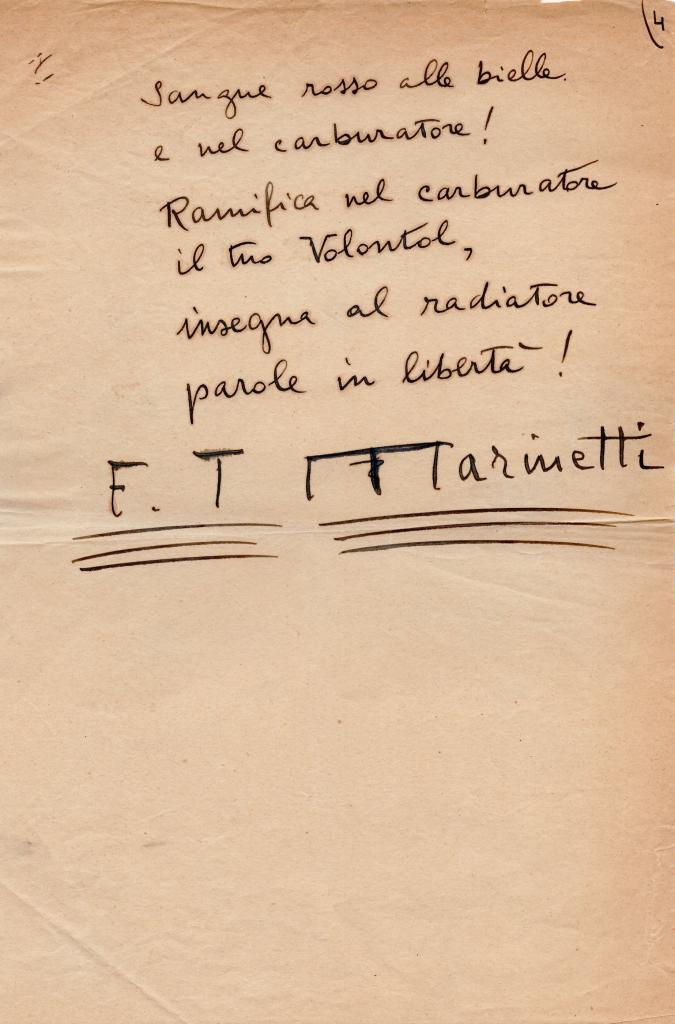 (4
Sangue rosso alle bielle.
e nel carburatore!
Ramifica nel carburatore
il tuo Volontol,
insegna al radiatore
parole in libertà!
F. T Marinetti